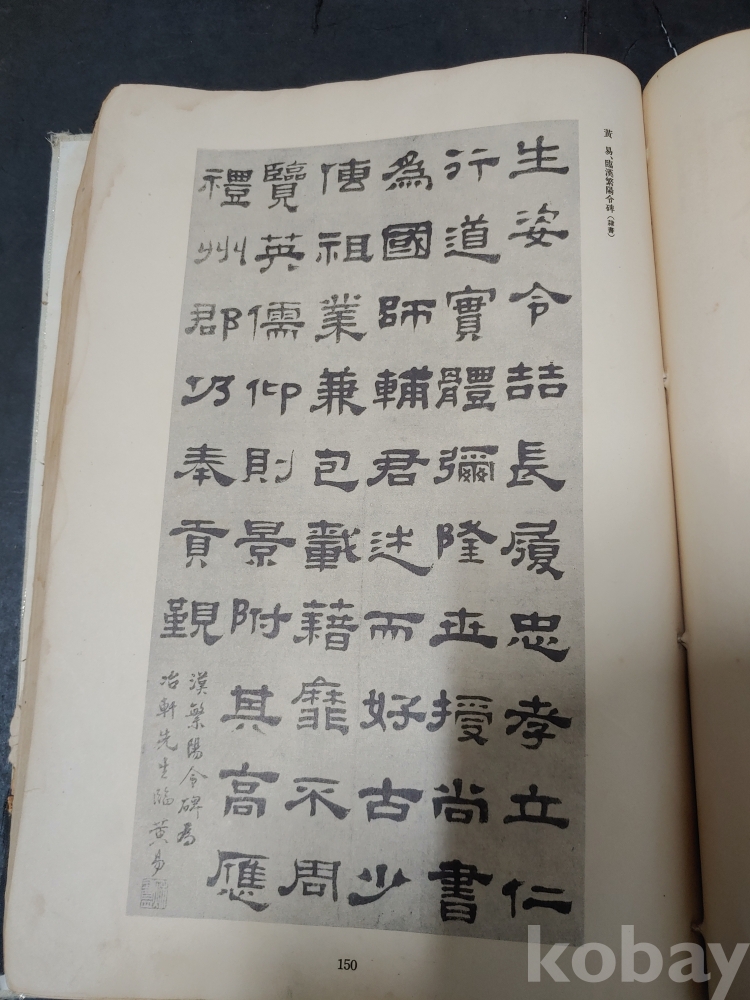 黃易、臨漢繁陽令碑（隸書）
生姿令喆長履忠孝立仁
行道實體彌隆世授尚書
為國師輔君述而好古少
傳祖業兼包載藉靡不周
覽英儒仰則景附其高應
禮州郡仍奉貢覲
漢繁陽令碑為
冶軒先生臨黃易
150
kobay